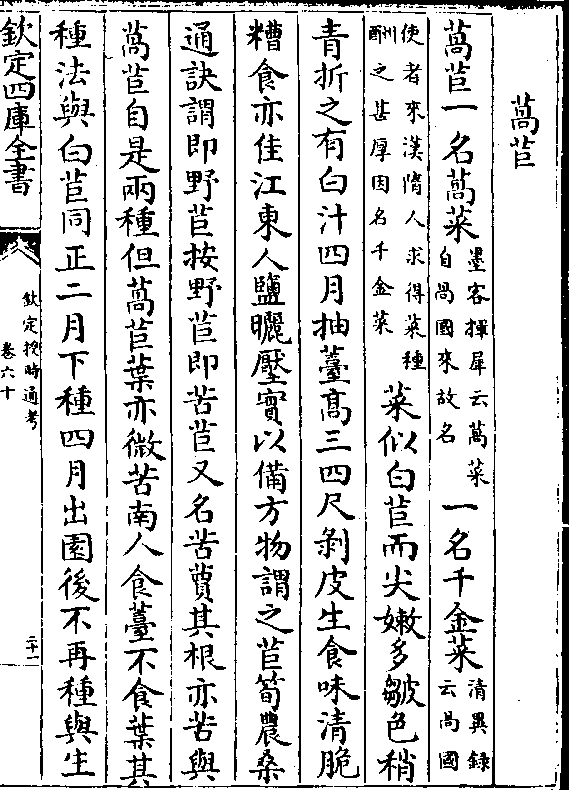 萵苣
萵苣一名萵菜墨客揮犀云萵菜自咼國來故名一名千金菜清異録云咼國
使者來漢隋人求得菜種酬之甚厚因名千金菜菜似白苣而尖嫩多皺色稍
青折之有白汁四月抽薹高三四尺剝皮生食味清脆
糟食亦佳江東人鹽曬壓實以備方物謂之苣筍農桑
通訣謂即野苣按野苣即苦苣又名苦蕒其根亦苦與
萵苣自是兩種但萵苣葉亦微苦南人食薹不食葉其
種法與白苣同正二月下種四月出園後不再種與生
欽定四庫全書
欽定授時通考
卷六十
二十一